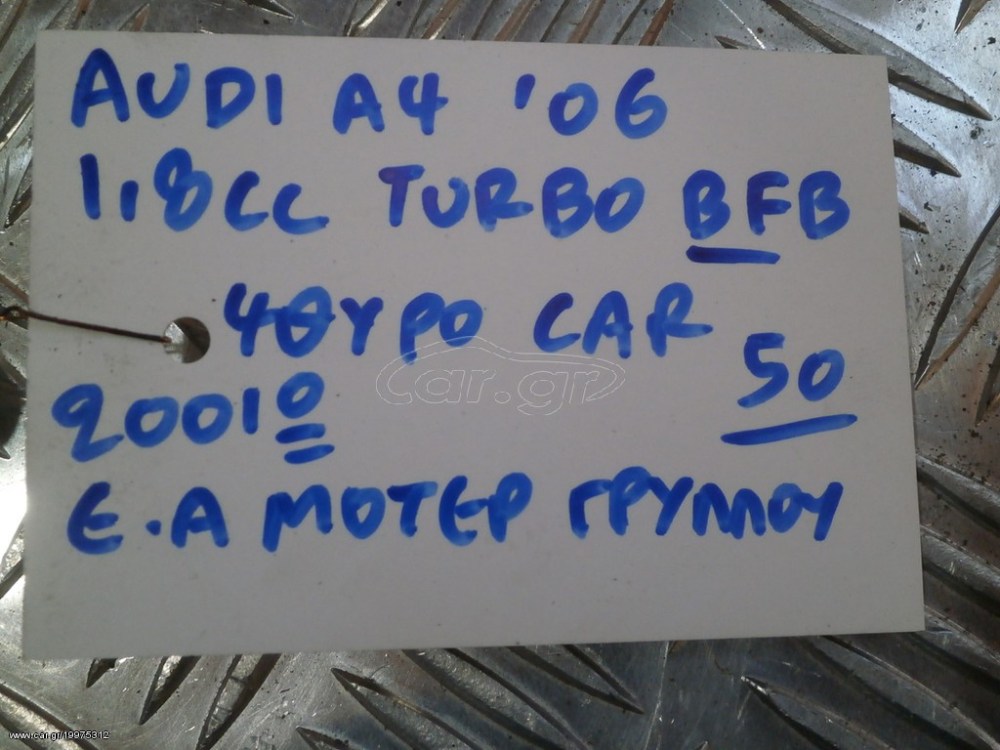 AUDI A4 '06
1,8CC TURBO BFB
4ΘΥΡΟ CAR
50
20010
Ε.Α ΜΟΤΕΡ ΓΡΥΛΛΟΥ
car.gr
www.car.gr/19975312